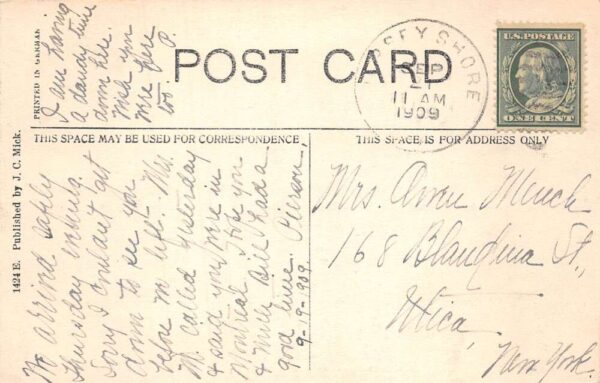 PRINTED IN GERMANY
1424 E. Published by J. C. Mick.
POST CARD
THIS SPACE MAY BE USED FOR CORRESPONDENCE
THIS SPACE IS FOR ADDRESS ONLY
SHORE
SEP
11 AM
1909
U.S. POSTAGE
ONE CENT
We arrived safely
Thursday evening.
Sorry I couldn't get
down to see you
before we left. Mrs.
W. called yesterday
& said you were in
Montreal. Hope you
& Bill had a
good time. Pierson.
9-9-909.
I am having
a dandy time
down here.
Wish you
were here
too P.
Mrs. Owen
168 Blandina St.,
Utica,
New York.